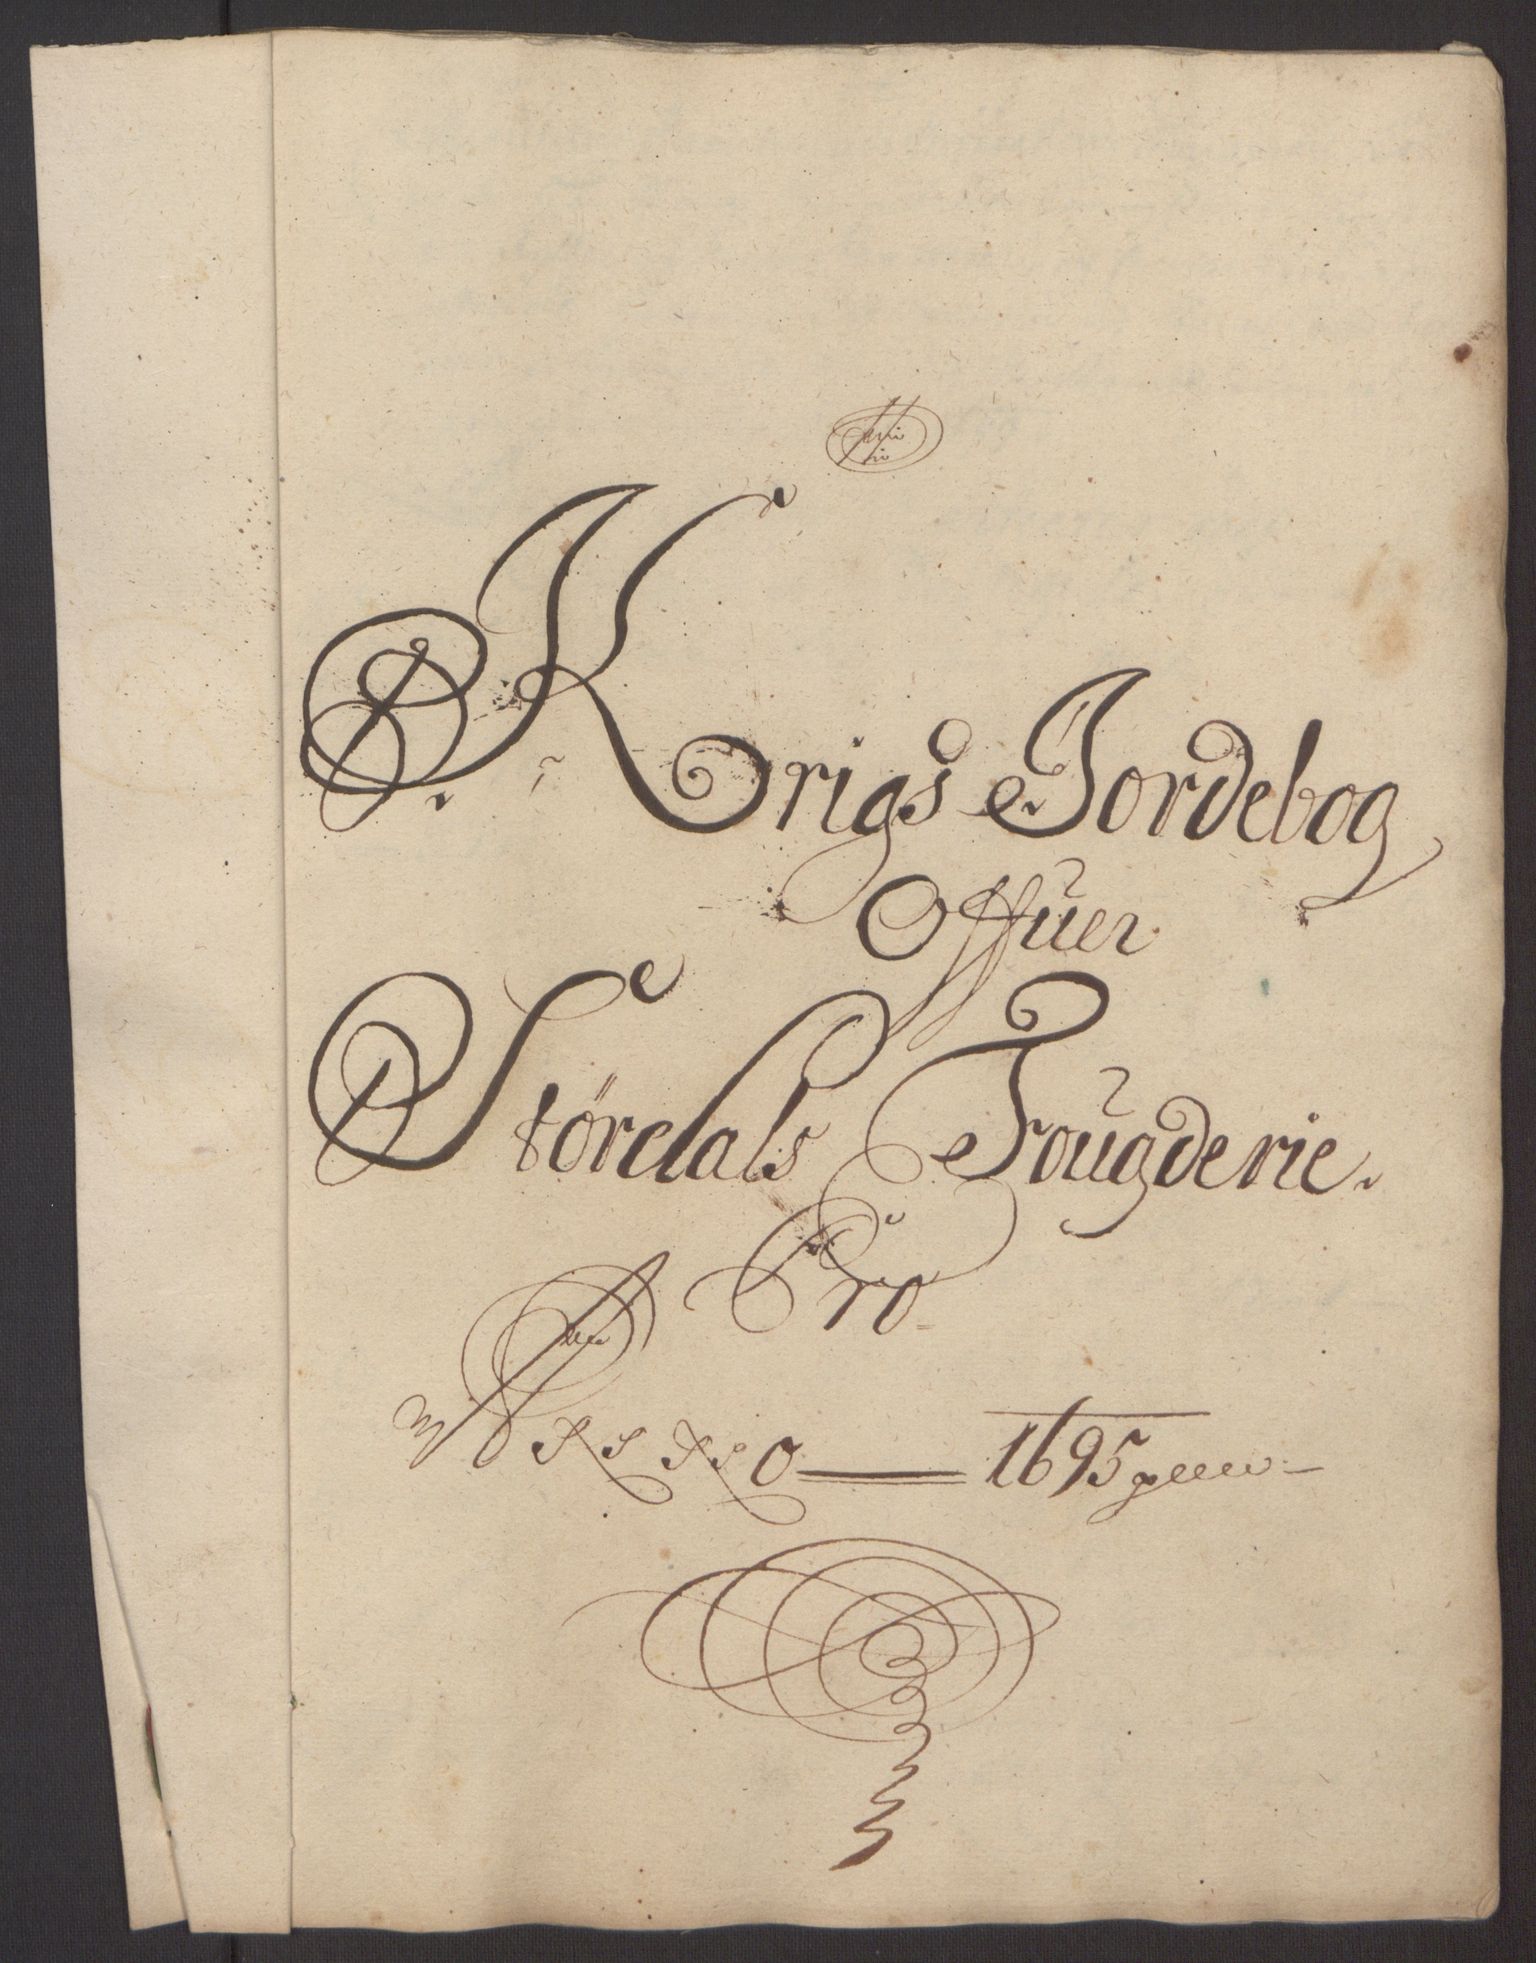 Krigs Jordebog
Offuer
Størdals Fougderie.
Pro
Anno 1695